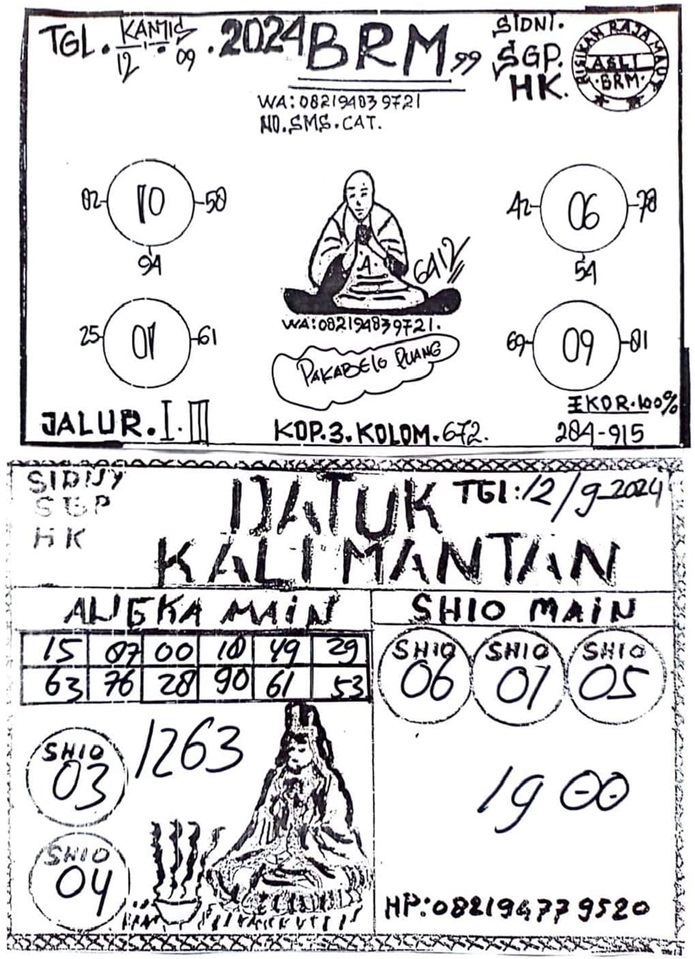 TGL. KAMIS .2024 BRM 99
12 09
SIDNI.
SGP.
HK.
RISIKAN RAJA MAUT
ASLI
BRM.
WA:082194839721
NO.SMS.CAT.
82 10 58
94
42 06 78
54
6412
25 01 61
69 09 81
WA:082194839721.
PAKABELO RUANG
JALUR. I. III
KOP.3. KOLOM. 672.
EKOR.100%
284-915
SIDNY
SGP
HK
DATUK
KALIMANTAN
TGl:12/9-2024
ANGKA MAIN
SHIO MAIN
15 07 00 10 49 29
63 76 28 90 61 53
SHIO
06
SHIO
07
SHIO
05
SHIO
03
1263
SHIO
04
19 00
HP:082194779520